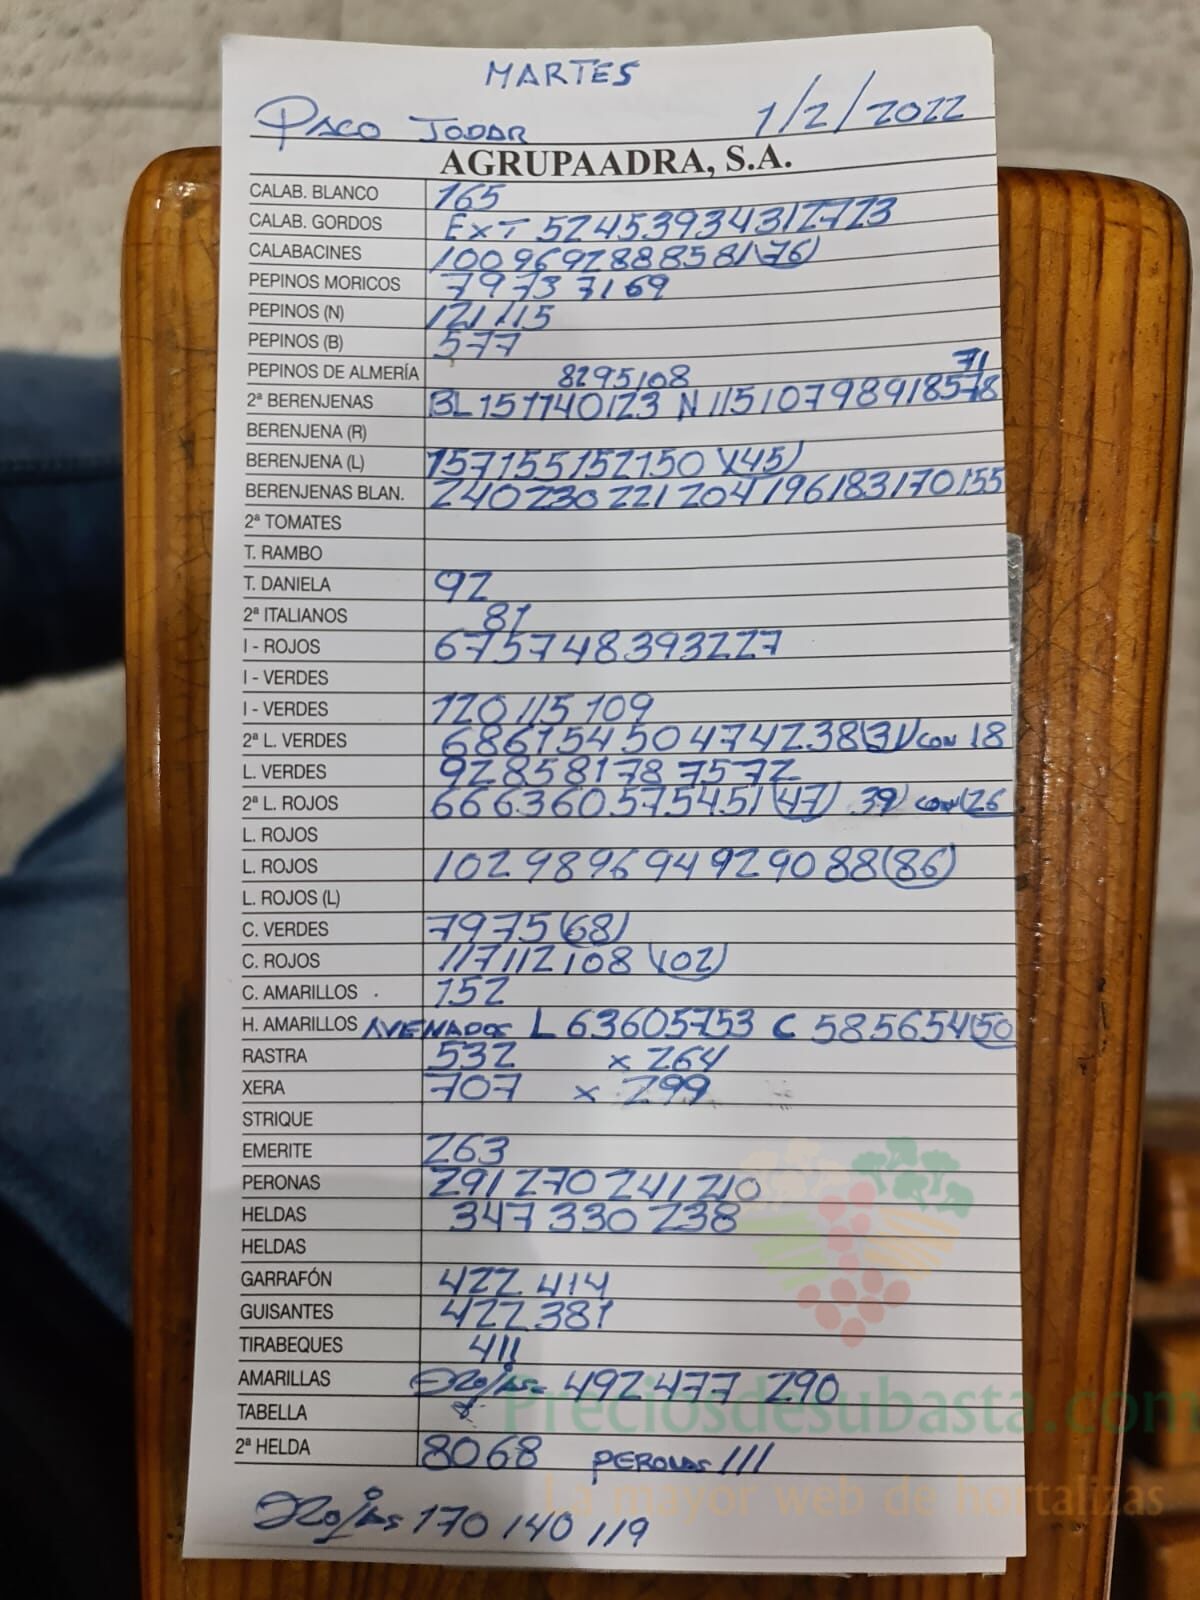 MARTES
PACO JODAR 1/2/2022
AGRUPAADRA, S.A.
CALAB. BLANCO 165
CALAB. GORDOS EXT 52 45 39 34 31 27 23
CALABACINES 100 96 92 88 85 81 (76)
PEPINOS MORICOS 79 73 71 69
PEPINOS (N) 121 115
PEPINOS (B) 577
PEPINOS DE ALMERÍA 82 95 108 71
2ª BERENJENAS BL 151 140 123 N 115 107 98 91 85 78
BERENJENA (R)
BERENJENA (L) 157 155 152 150 (145)
BERENJENAS BLAN. 240 230 221 204 196 183 170 155
2ª TOMATES
T. RAMBO
T. DANIELA 92
2ª ITALIANOS 81
I - ROJOS 67 57 48 39 32 27
I - VERDES
I - VERDES 120 115 109
2ª L. VERDES 68 61 54 50 47 42 38 (31) CON 18
L. VERDES 92 85 81 78 75 72
2ª L. ROJOS 66 63 60 57 54 51 (47) 39) CON (26
L. ROJOS
L. ROJOS 102 98 96 94 92 90 88 (86)
L. ROJOS (L)
C. VERDES 79 75 (68)
C. ROJOS 117 112 108 (102)
C. AMARILLOS 152
H. AMARILLOS AVENADOS L 63 60 57 53 C 58 56 54 (50)
RASTRA 532 x 264
XERA 707 x 299
STRIQUE
EMERITE 263
PERONAS 291 270 241 210
HELDAS 347 330 238
HELDAS
GARRAFÓN 422 414
GUISANTES 422 381
TIRABEQUES 411
AMARILLAS Rojas 492 477 290
TABELLA
2ª HELDA 80 68 PERONAS 111
Rojas 170 140 119
Preciosdesubasta.com
La mayor web de hortalizas